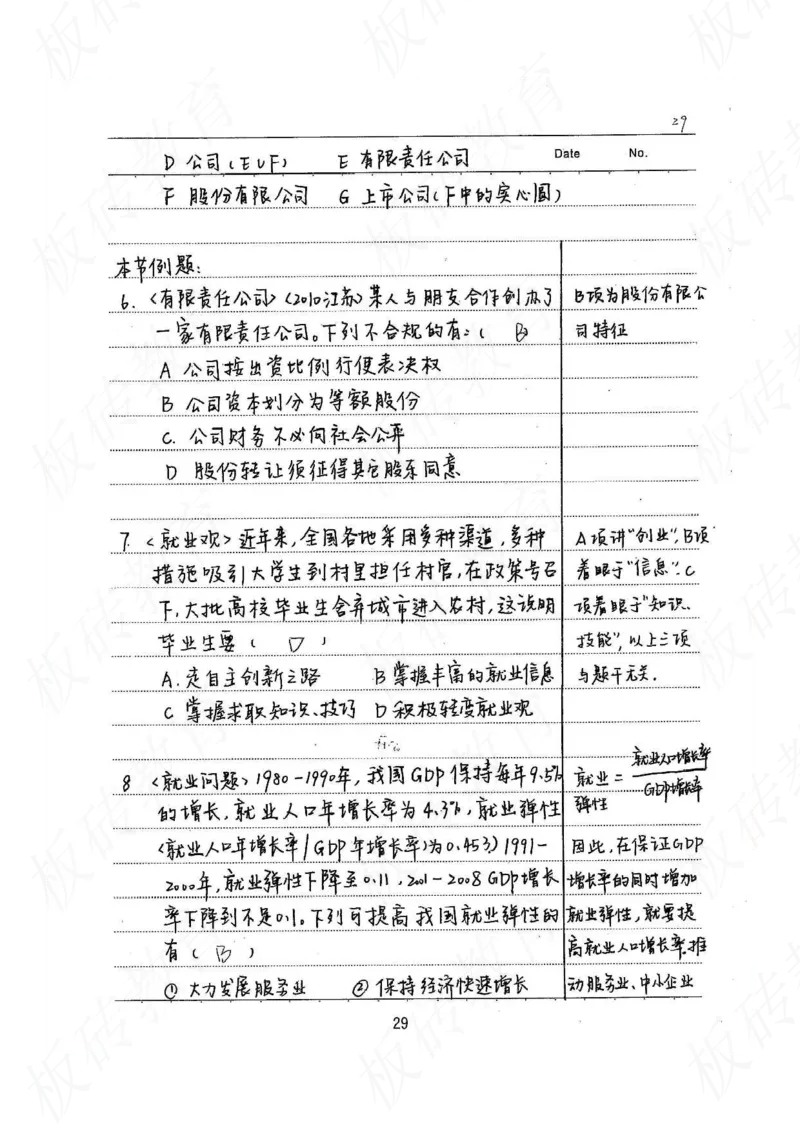 29
Date No.
D 公司(E∪F) E 有限责任公司
F 股份有限公司 G 上市公司(F中的实心圆)
本节例题:
6. <有限责任公司> <2010江苏> 某人与朋友合作创办了
一家有限责任公司。下列不合规的有:( B )
A 公司按出资比例行使表决权
B 公司资本划分为等额股份
C. 公司财务不必向社会公开
D 股份转让须征得其它股东同意
B项为股份有限公
司特征
7. <就业观> 近年来,全国各地采用多种渠道,多种
措施吸引大学生到村里担任村官,在政策号召
下,大批高校毕业生舍弃城市进入农村,这说明
毕业生要( D )
A. 走自主创新之路 B 掌握丰富的就业信息
C 掌握求职知识、技巧 D 积极转变就业观
A项讲"创业",B项
着眼于"信息".C
项着眼于"知识、
技能",以上三项
与题干无关.
8 <就业问题> 1980-1990年,我国GDP保持每年9.5%
的增长,就业人口年增长率为4.3%,就业弹性
(就业人口年增长率/GDP年增长率)为0.453) 1991-
2000年,就业弹性下降至0.11,2001-2008 GDP增长
率下降到不足0.1。下列可提高我国就业弹性的
有( B )
① 大力发展服务业 ② 保持经济快速增长
就业弹性 = 就业人口增长率/GDP增长率
因此,在保证GDP
增长率的同时增加
就业弹性,就要提
高就业人口增长率.推
动服务业、中小企业
29
板砖教育